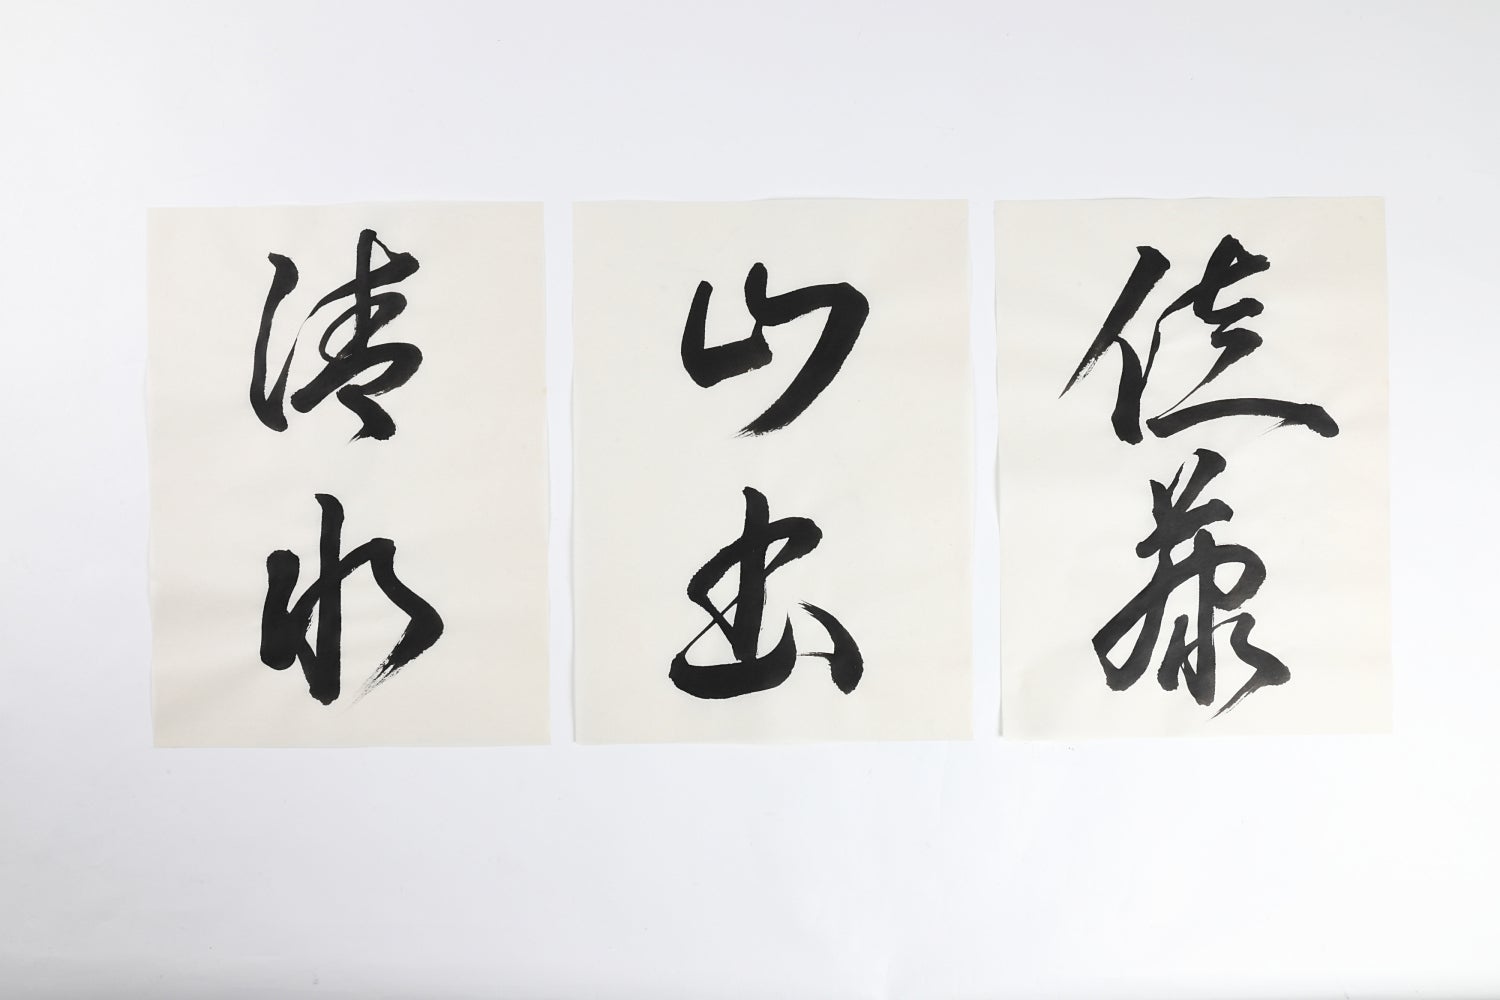 佐藤
山
清水